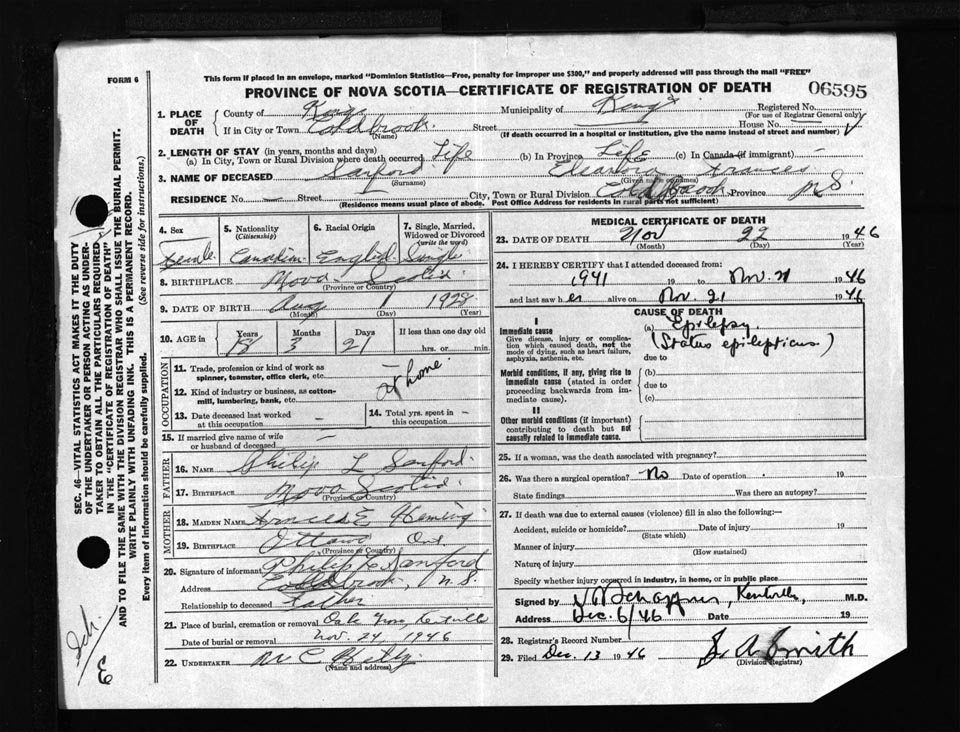 FORM 6
This form if placed in an envelope, marked "Dominion Statistics—Free, penalty for improper use $300," and properly addressed will pass through the mail "FREE"
PROVINCE OF NOVA SCOTIA—CERTIFICATE OF REGISTRATION OF DEATH
06595
1. PLACE OF DEATH
County of Kings
Municipality of Kings
Registered No.
(For use of Registrar General only)
If in City or Town Coldbrook
(Name)
Street
House No.
(If death occurred in a hospital or institution, give the name instead of street and number)
2. LENGTH OF STAY (in years, months and days)
(a) In City, Town or Rural Division where death occurred Life
(b) In Province Life
(c) In Canada (if immigrant) —
3. NAME OF DECEASED Sanford
(Surname)
Frances
(Given Names)
RESIDENCE No. — Street
City, Town or Rural Division Coldbrook Province N.S.
(Residence means usual place of abode. Post Office Address for residents in rural parts not sufficient)
4. Sex
Female
5. Nationality
(Citizenship)
Canadian
6. Racial Origin
English
7. Single, Married, Widowed or Divorced
(write the word)
Single
8. BIRTHPLACE Nova Scotia
(Province or Country)
9. DATE OF BIRTH Aug 1 1928
(Month) (Day) (Year)
10. AGE in
Years 18
Months 3
Days 21
If less than one day old
hrs. or min.
OCCUPATION
11. Trade, profession or kind of work as spinner, teamster, office clerk, etc. —
12. Kind of industry or business, as cotton-mill, lumbering, bank, etc.
at home
13. Date deceased last worked at this occupation —
14. Total yrs. spent in this occupation —
15. If married give name of wife or husband of deceased —
FATHER
16. NAME Philip L Sanford
17. BIRTHPLACE Nova Scotia
(Province or Country)
MOTHER
18. MAIDEN NAME E Fleming
19. BIRTHPLACE Ottawa Ont
(Province or Country)
20. Signature of informant Philip L Sanford
Address Coldbrook, N.S.
Relationship to deceased Father
21. Place of burial, cremation or removal Oak Grove, Kentville
Date of burial or removal Nov. 24, 1946
22. UNDERTAKER
(Name and address)
MEDICAL CERTIFICATE OF DEATH
23. DATE OF DEATH Nov 22 1946
(Month) (Day) (Year)
24. I HEREBY CERTIFY that I attended deceased from:
1941 19 to Nov. 21 1946
and last saw her alive on Nov. 21 1946
CAUSE OF DEATH
I
Immediate cause
Give disease, injury or complication which caused death, not the mode of dying, such as heart failure, asphyxia, asthenia, etc.
(a) Epilepsy.
(Status epilepticus)
due to
Morbid conditions, if any, giving rise to immediate cause (stated in order proceeding backwards from immediate cause).
(b)
due to
(c)
II
Other morbid conditions (if important) contributing to death but not causally related to immediate cause.
25. If a woman, was the death associated with pregnancy?
26. Was there a surgical operation? No Date of operation 19
State findings Was there an autopsy?
27. If death was due to external causes (violence) fill in also the following:—
Accident, suicide or homicide? Date of injury 19
(State which)
Manner of injury
(How sustained)
Nature of injury
Specify whether injury occurred in industry, in home, or in public place
Signed by Kentville, M.D.
Address Dec. 6/46 Date 19
28. Registrar's Record Number
29. Filed Dec. 13 1946
A Smith
(Division Registrar)
SEC. 46—VITAL STATISTICS ACT MAKES IT THE DUTY
OF THE UNDERTAKER OR PERSON ACTING AS UNDERTAKER TO OBTAIN ALL THE PARTICULARS REQUIRED
IN THE "CERTIFICATE OF REGISTRATION OF DEATH"
AND TO FILE THE SAME WITH THE DIVISION REGISTRAR WHO SHALL ISSUE THE BURIAL PERMIT.
WRITE PLAINLY WITH UNFADING INK. THIS IS A PERMANENT RECORD.
Every item of information should be carefully supplied. (See reverse side for instructions.)